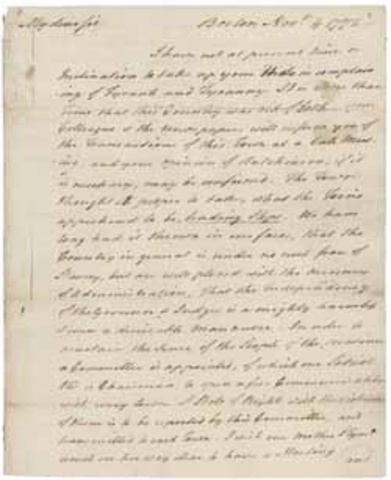 My dear Sir Boston Novr 4 1772
I have not at present time or
Inclination to take up your time in complain
ing of Tyrants and Tyranny. It is more than
time that this Country was rid of both. Our
Colleagues & the Newspapers will inform you of
the Transactions of this Town at a late Meet
ing, and your opinion of Hutchinson, if it
is necessary, may be confirmed. The Town
thought it proper to take, what the Tories
apprehend to be, leading Steps. We have
long had it thrown in our face, that the
Country in general is under no such fears of
Slavery, but are well pleased with the measures
of Administration, That the Independency
of the Governor & Judges is a mighty harmless
& even a desirable manoeuvre. In order to
ascertain the Sense of the People of the Province
a Committee is appointed, of which our Patriot
Otis is Chairman, to open a free Communication
with every town. A State of Rights with the violations
of them is to be reported by this Committee, and
transmitted to each Town. I wish our Mother Plymo
would see her way clear to have a Meeting
and